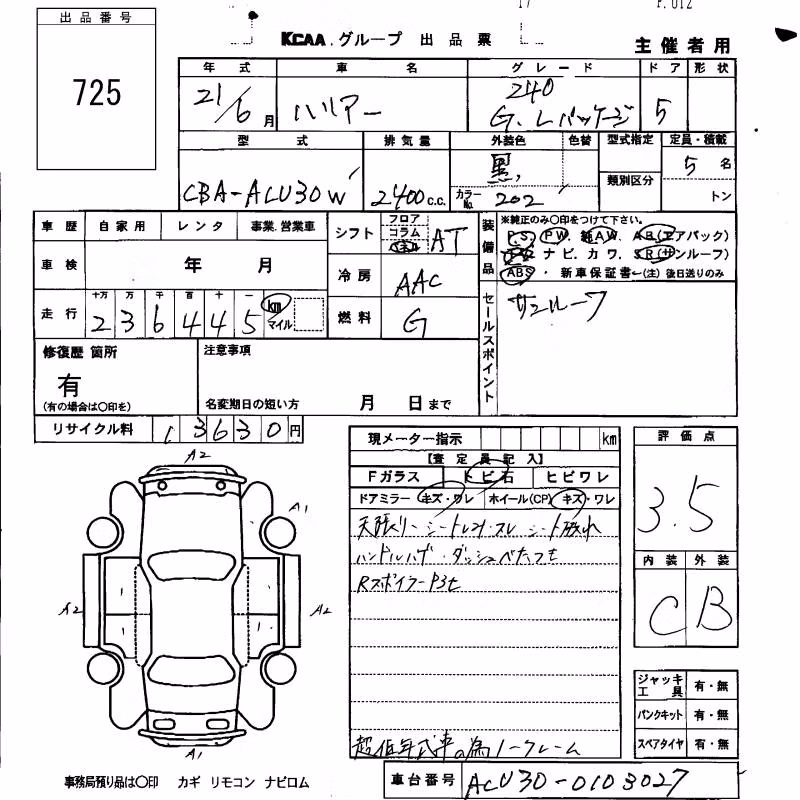 出品番号
725
KCAA.グループ 出品票
P.012
主催者用
年式 車名 グレード ドア 形状
21/6月 ハリアー 240 G.Lパッケージ 5
型式 排気量 外装色 色替 型式指定 定員・積載
CBA-ACU30W 2400c.c. 黒 カラーNo. 202 類別区分 5名
トン
車歴 自家用 レンタ 事業.営業車
車検 年 月
走行 十万 万 千 百 十 一
236445 km マイル
シフト フロア コラム AT
冷房 AAC
燃料 G
装備品 ※純正のみ○印をつけて下さい。
P.S. PW. 純AW. A.B(エアバック)
ナビ. カワ. SR(サンルーフ)
ABS ・ 新車保証書←(注) 後日送りのみ
セールスポイント サンルーフ
修復歴 箇所
有
(有の場合は○印を)
注意事項
名変期日の短い方 月 日まで
リサイクル料 13630円
現メーター指示 km
【査定員記入】
Fガラス トビ石 ヒビワレ
ドアミラー キズ・ワレ ホイール(CP) キズ・ワレ
天張り・シートレカ・スレ シート破れ
ハンドルハゲ・ダッシュベたつき
Rスポイラーアセ
超低年式車の為ノークレーム
評価点
3.5
内装 外装
C B
A2
A1
A2
A2
A1
ジャッキ工具 有・無
パンクキット 有・無
スペアタイヤ 有・無
事務局預り品は○印 カギ リモコン ナビロム
車台番号 ACU30-0103027